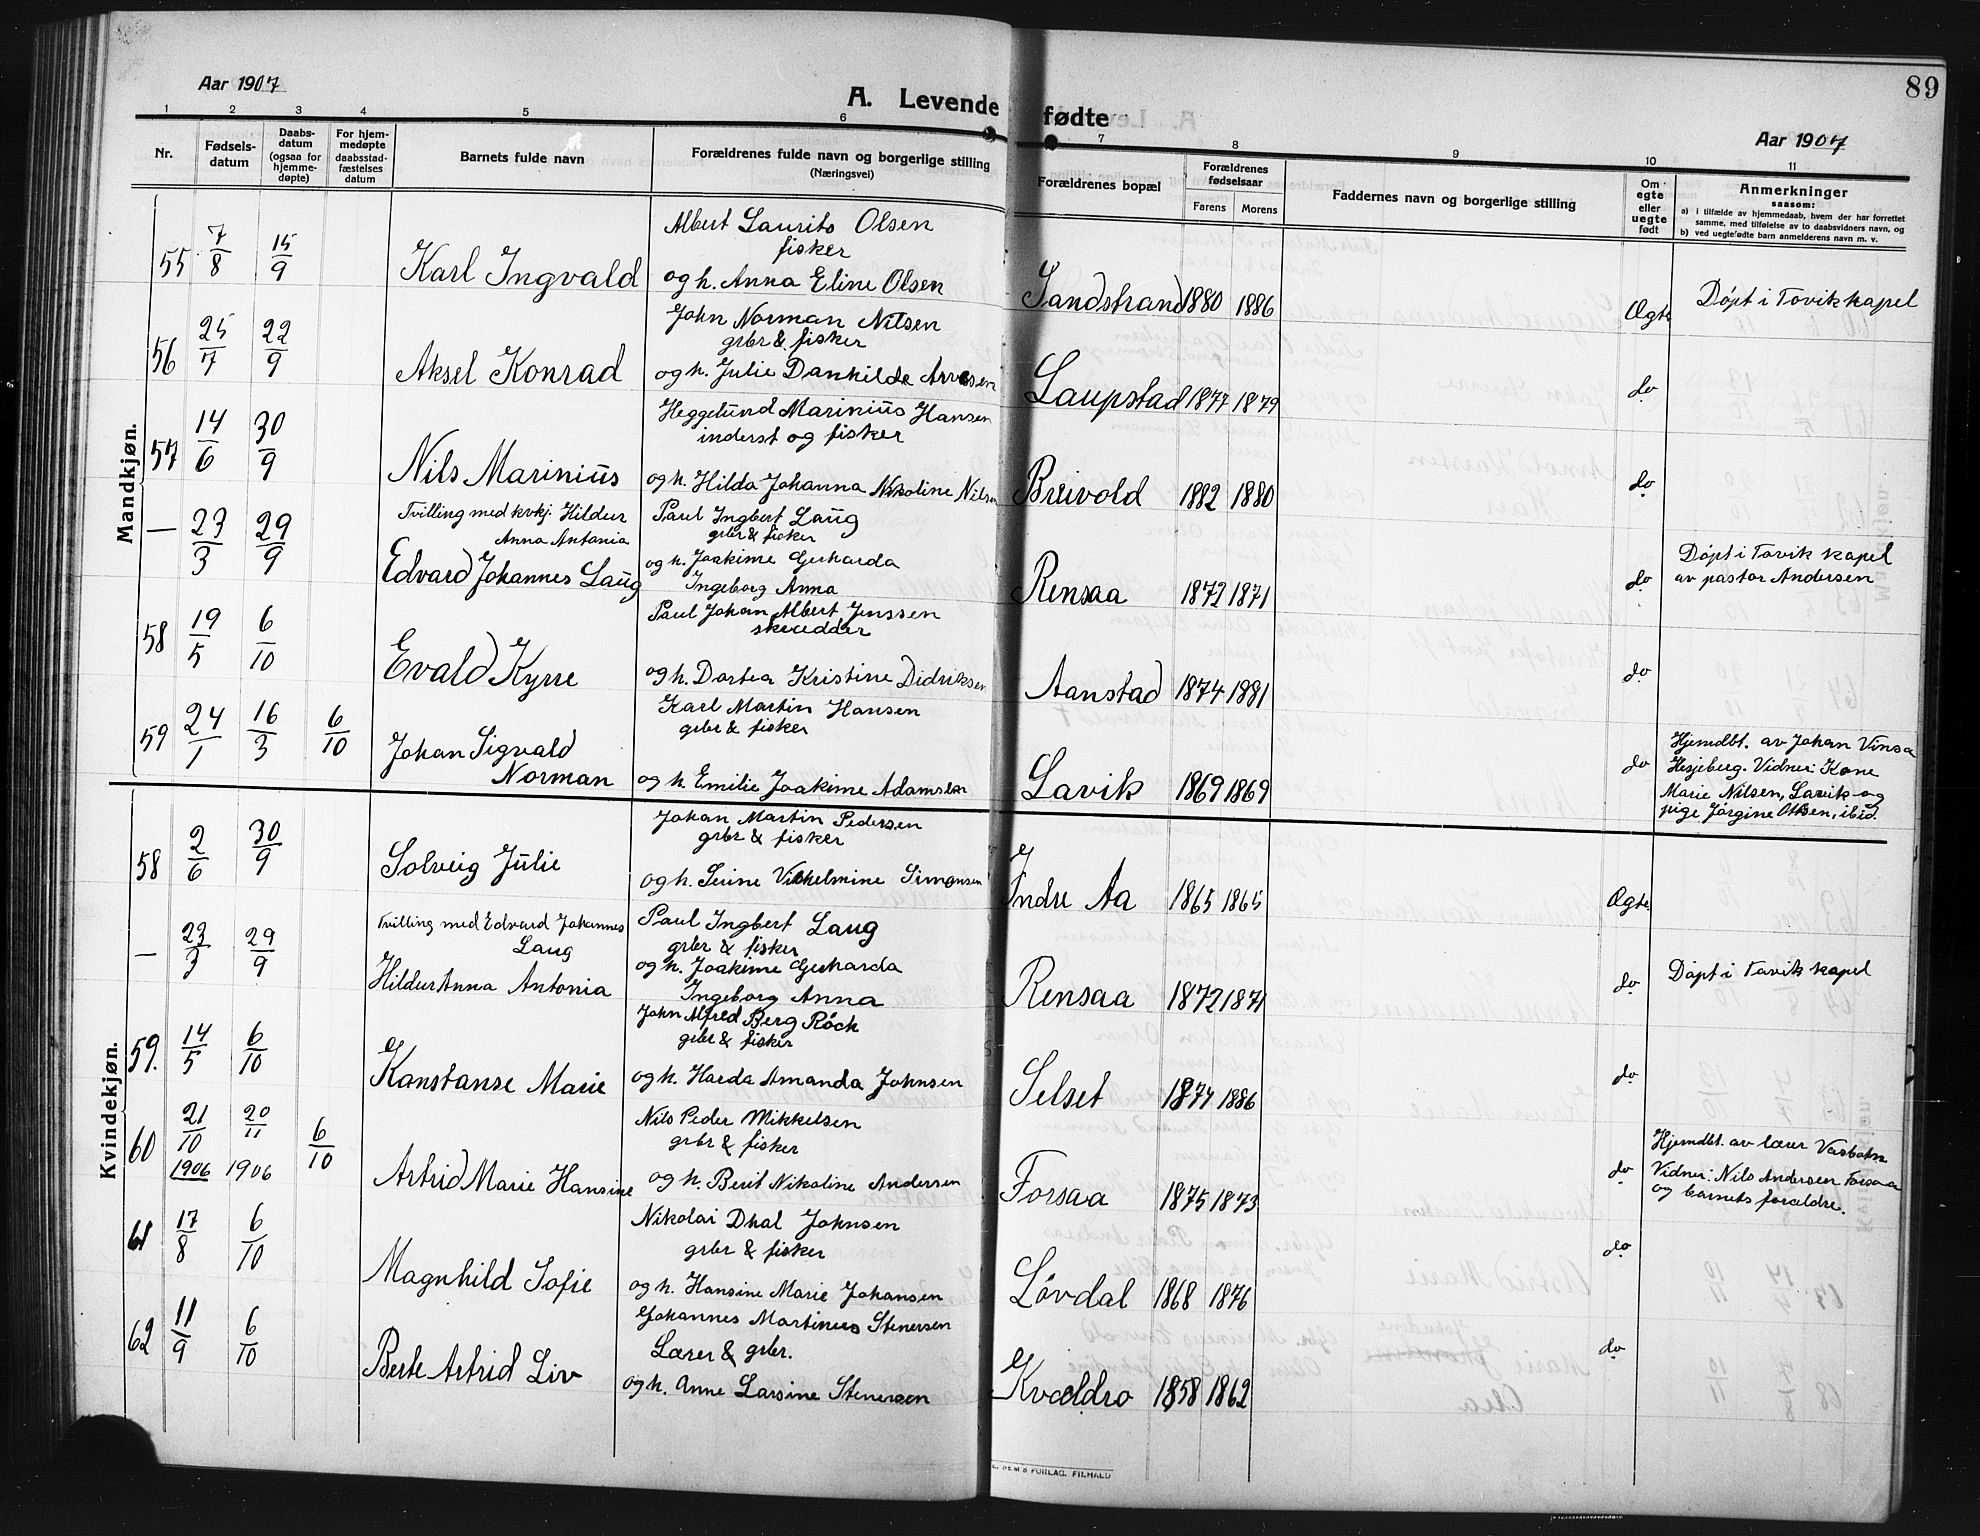 89
Aar 1907
A. Levende fødte
Aar 1907
1 2 3 4 5 6 7 8 9 10 11
Nr.
Fødsels-
datum
Daabs-
datum
(ogsaa for
hjemme-
døpte)
For hjem-
medøpte
daabsstad-
fæstelses
datum
Barnets fulde navn
Forældrenes fulde navn og borgerlige stilling
(Næringsvei)
Forældrenes bopæl
Forældrenes
fødselsaar
Farens Morens
Faddernes navn og borgerlige stilling
Om
egte
eller
uegte
født
Anmerkninger
saasom:
a) i tilfælde av hjemmedaab, hvem der har forrettet
samme, med tilføielse av to daabsvidners navn, og
b) ved uegtefødte barn anmelderens navn m. v.
Mandkjøn.
55 7/8 15/9 Karl Ingvald
Albert Laurits Olsen
fisker
og h. Anna Eline Olsen
Sandstrand 1880 1886 Ægte
Døpt i Tovik kapel
56 25/7 22/9 Aksel Konrad
John Norman Nilsen
grbr & fisker
og h. Julie Danhilde Arvesen
Laupstad 1877 1879 do
57 14/6 30/9 Nils Marinius
Heggelund Marinius Hansen
inderst og fisker
og h. Hilda Johanna Nikoline Nilsen
Breivold 1882 1880 do
— 23/3 29/9
Tvilling med kvkj. Hildur
Anna Antonia
Edvard Johannes Laug
Paul Ingbert Laug
grbr & fisker
og h. Joakime Gerharda
Ingeborg Anna
Rensaa 1872 1871 do
Døpt i Tovik kapel
av pastor Andersen
58 19/5 6/10 Evald Kyrre
Paul Johan Albert Jenssen
skrædder
og h. Dortea Kristine Didriksen
Aanstad 1874 1881 do
59 24/1 16/3 6/10 Johan Sigvald
Norman
Karl Martin Hansen
grbr & fisker
og h. Emilie Joakime Adamsen
Lavik 1869 1869 do
Hjemdbt. av Johan Vinsa
Hesjeberg. Vidner: Kone
Marie Nilsen, Lavik og
pige Jørgine Olsen, ibid.
Kvindekjøn.
58 2/6 30/9 Solveig Julie
Johan Martin Pedersen
grbr & fisker
og h. Serine Vilhelmine Simonsen
Indre Aa 1865 1865 Ægte
— 23/3 29/9
Tvilling med Edvard Johannes
Laug
Hildur Anna Antonia
Paul Ingbert Laug
grbr & fisker
og h. Joakime Gerharda
Ingeborg Anna
Rensaa 1872 1871 do
Døpt i Tovik kapel
59. 14/5 6/10 Konstanse Marie
John Alfred Berg Röch
grbr & fisker
og h. Harda Amanda Johnsen
Selset 1874 1886 do
60 21/10 1906 20/11 1906 6/10 Astrid Marie Hansine
Nils Peder Mikkelsen
grbr & fisker
og h. Berit Nikoline Andersen
Forsaa 1875 1873 do
Hjemdbt. av lærer
Vidner: Nils Andersen Forsaa
og barnets forældre.
61 17/8 6/10 Magnhild Sofie
Nikolai Dhal Johnsen
grbr & fisker
og h. Hansine Marie Johansen
Løvdal 1868 1876 do
62 11/9 6/10 Berte Astrid Liv
Johannes Martinus Stenersen
Lærer & grbr.
og h. Anne Larsine Stenersen
Kvældro 1858 1862 do
SEM'S FORLAG, F.HALD